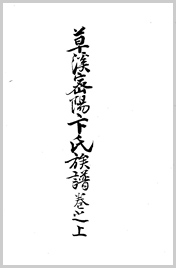 草溪密陽卞氏族譜卷之上